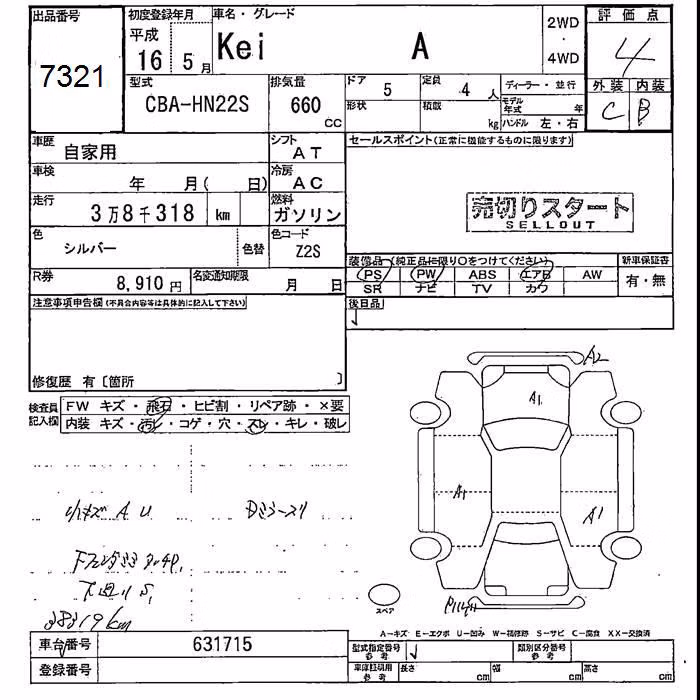 出品番号
7321
初度登録年月
平成
16 5月
車名・グレード
Kei A
2WD
・
4WD
評価点
4
外装 内装
C B
型式
CBA-HN22S
排気量
660
CC
ドア 5
定員 4人
ディーラー・並行
形状
積載
kg
モデル年式 年
ハンドル 左・右
車歴
自家用
シフト
AT
セールスポイント(正常に機能するものに限ります)
車検
年 月( 日)
冷房
AC
走行
3万8千318 km
燃料
ガソリン
売切りスタート
SELLOUT
色
シルバー
色替
色コード
Z2S
装備品(純正品に限り○をつけてください)
PS PW ABS エアB AW
SR ナビ TV カワ
新車保証書
有・無
R券
8,910円
名変通知期限
月 日
後日品
注意事項申告欄(不具合内容等は具体的に記入して下さい)
修復歴 有〔箇所 〕
検査員記入欄
FW キズ・飛石・ヒビ割・リペア跡・×要
内装 キズ・汚レ・コゲ・穴・スレ・キレ・破レ
小キズ A U
38319km
A2
A1
A1
A1
スペア
A-キズ E-エクボ U-凹み W-補修跡 S-サビ C-腐食 XX-交換済
車台番号 631715
登録番号
型式指定番号
参考
類別区分番号
参考
車庫証明用
参考
長さ cm 幅 cm 高さ cm